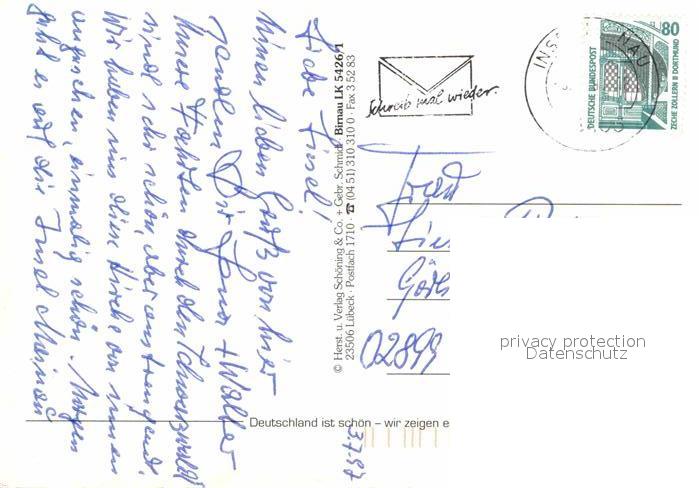 Liebe Gisel!
Einen lieben Gruß von hier
senden Dir Irma + Walter
Unsere Fahrten durch den Schwarzwald
sind sehr schön, aber anstrengend.
Wir haben uns diese Kirche von innen
angesehen, einmalig schön. Morgen
geht es auf die Insel Mainau
3.7.97
© Herst. u. Verlag Schöning & Co. + Gebr. Schmidt · Birnau LK 5426/1
23506 Lübeck · Postfach 1710 · ☎ (04 51) 310 310 0 · Fax 3 52 83
Deutschland ist schön – wir zeigen e
Schreib mal wieder.
INS
NAU
80
DEUTSCHE BUNDESPOST
ZECHE ZOLLERN II DORTMUND
Görl
02899
privacy protection
Datenschutz